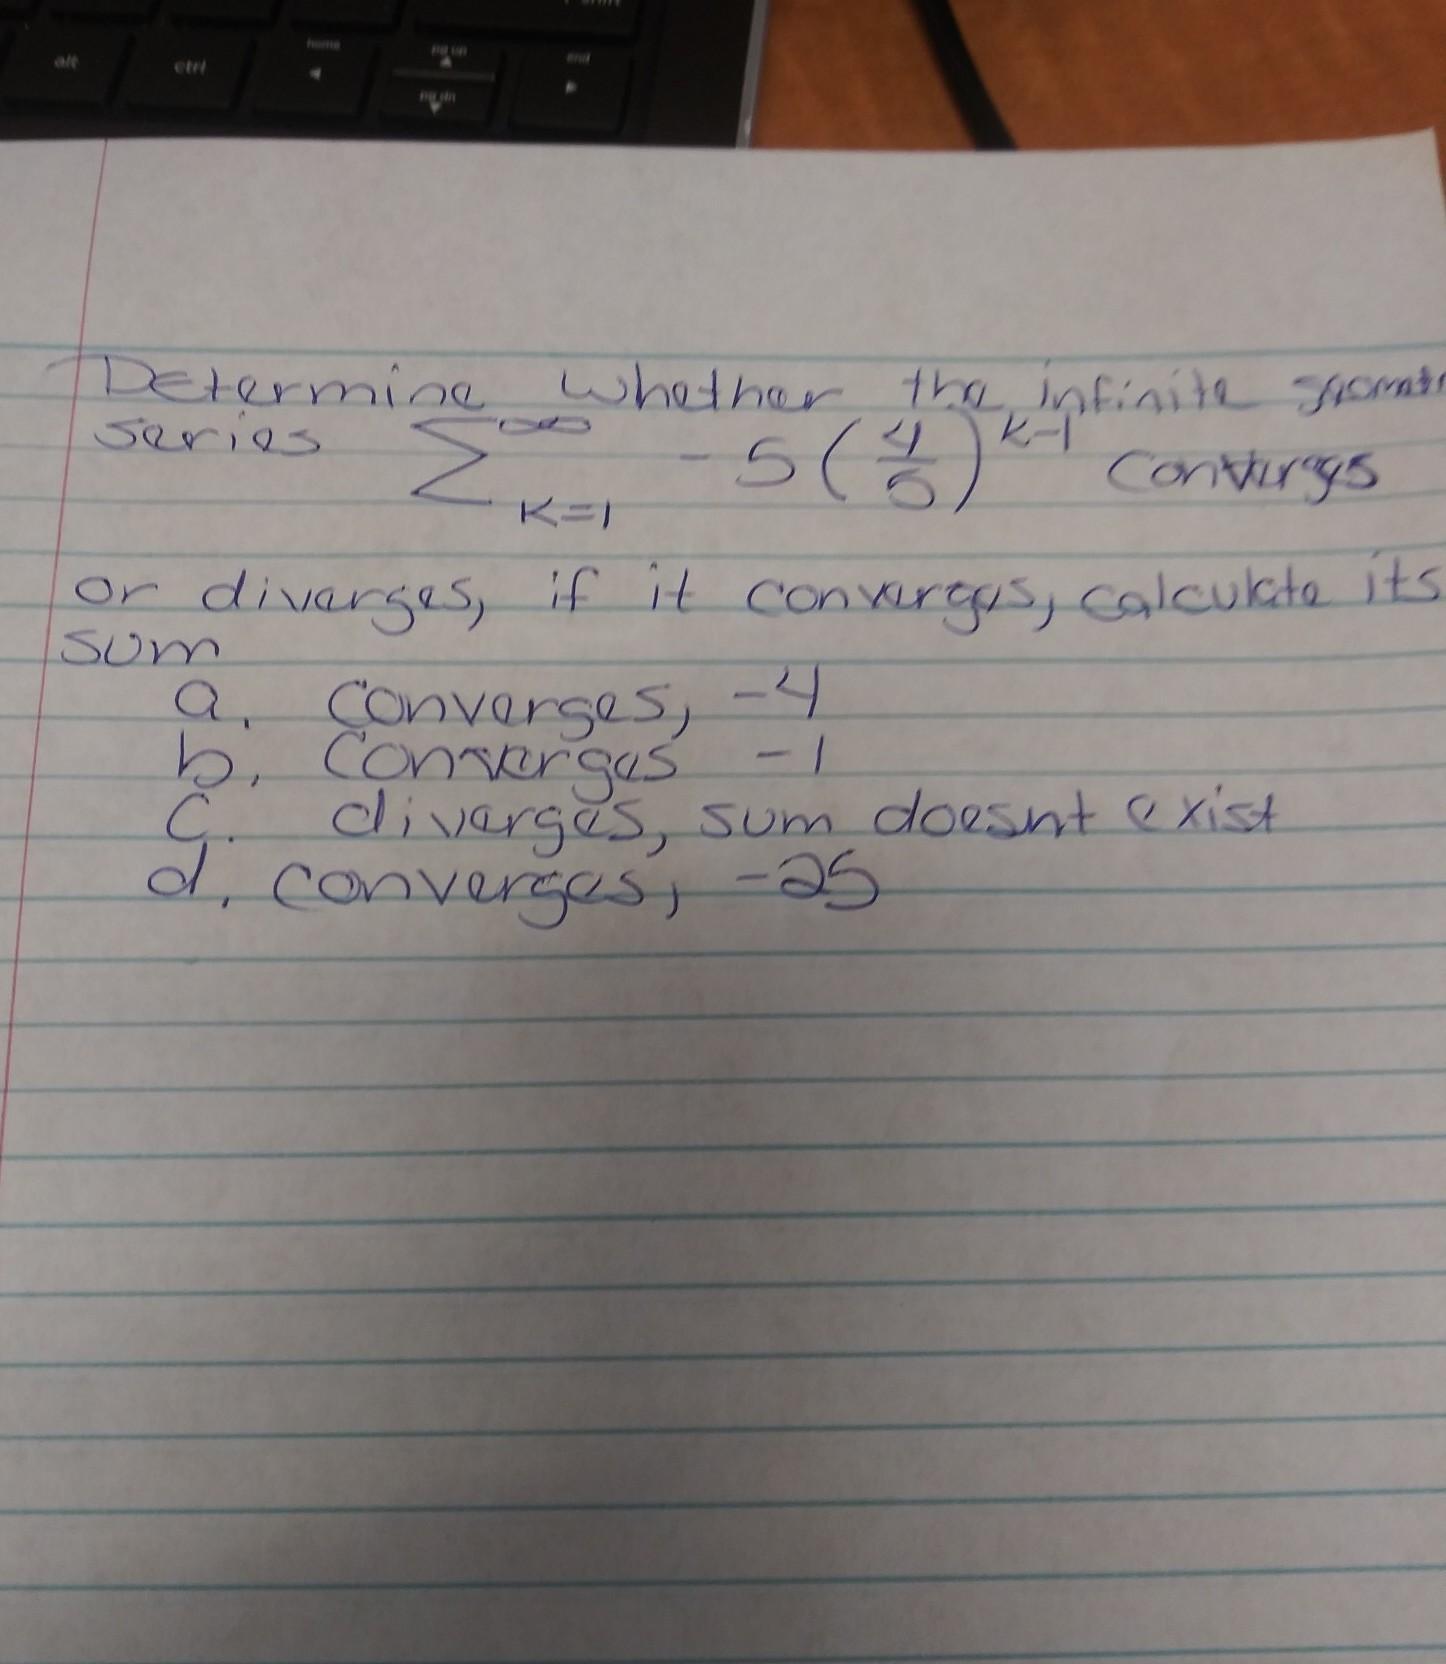 alt ctrl home pg up pg dn end
Determine whether the infinite
series ∑^∞_{K=1} -5(4/5)^{K-1} converges
or diverges, if it converges, calculate its
sum
a. converges, -4
b. converges -1
c. diverges, sum doesnt exist
d. converges, -25